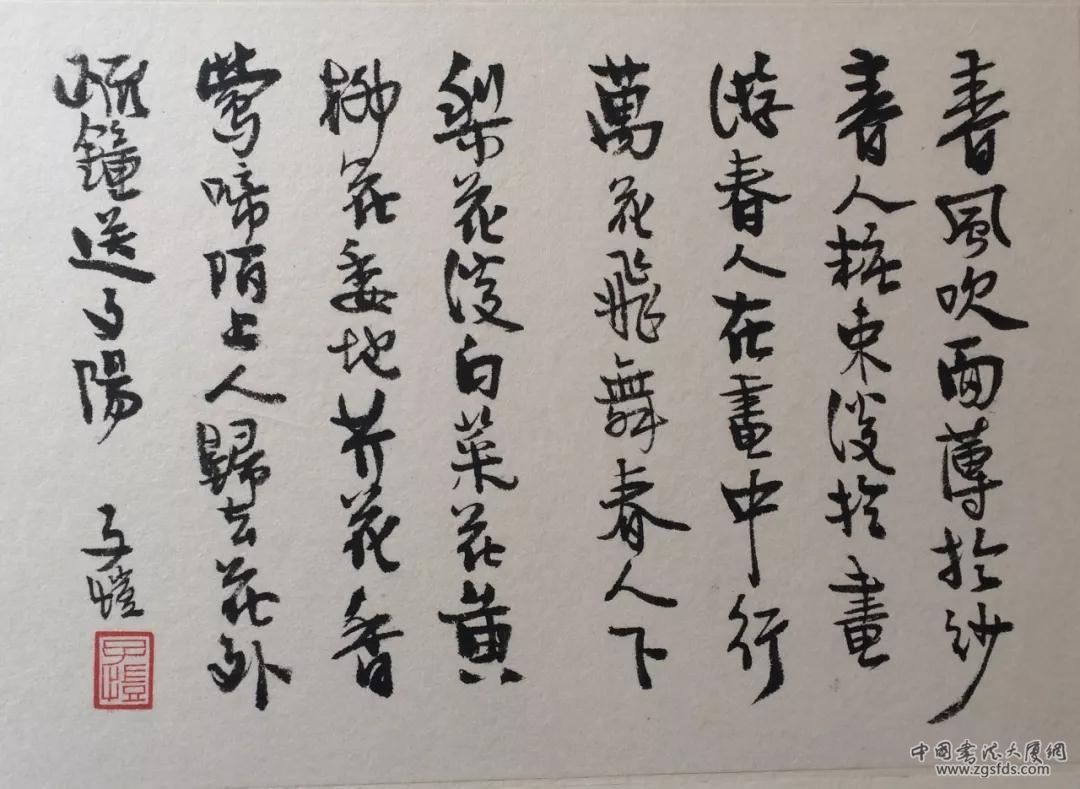 春風吹面薄於紗
春人粧束淡於畫
游春人在畫中行
萬花飛舞春人下
梨花淡白菜花黃
柳花委地芥花香
鶯啼陌上人歸去花外
疏鐘送夕陽 子愷
子愷
中國書法大廈網
www.zgsfds.com